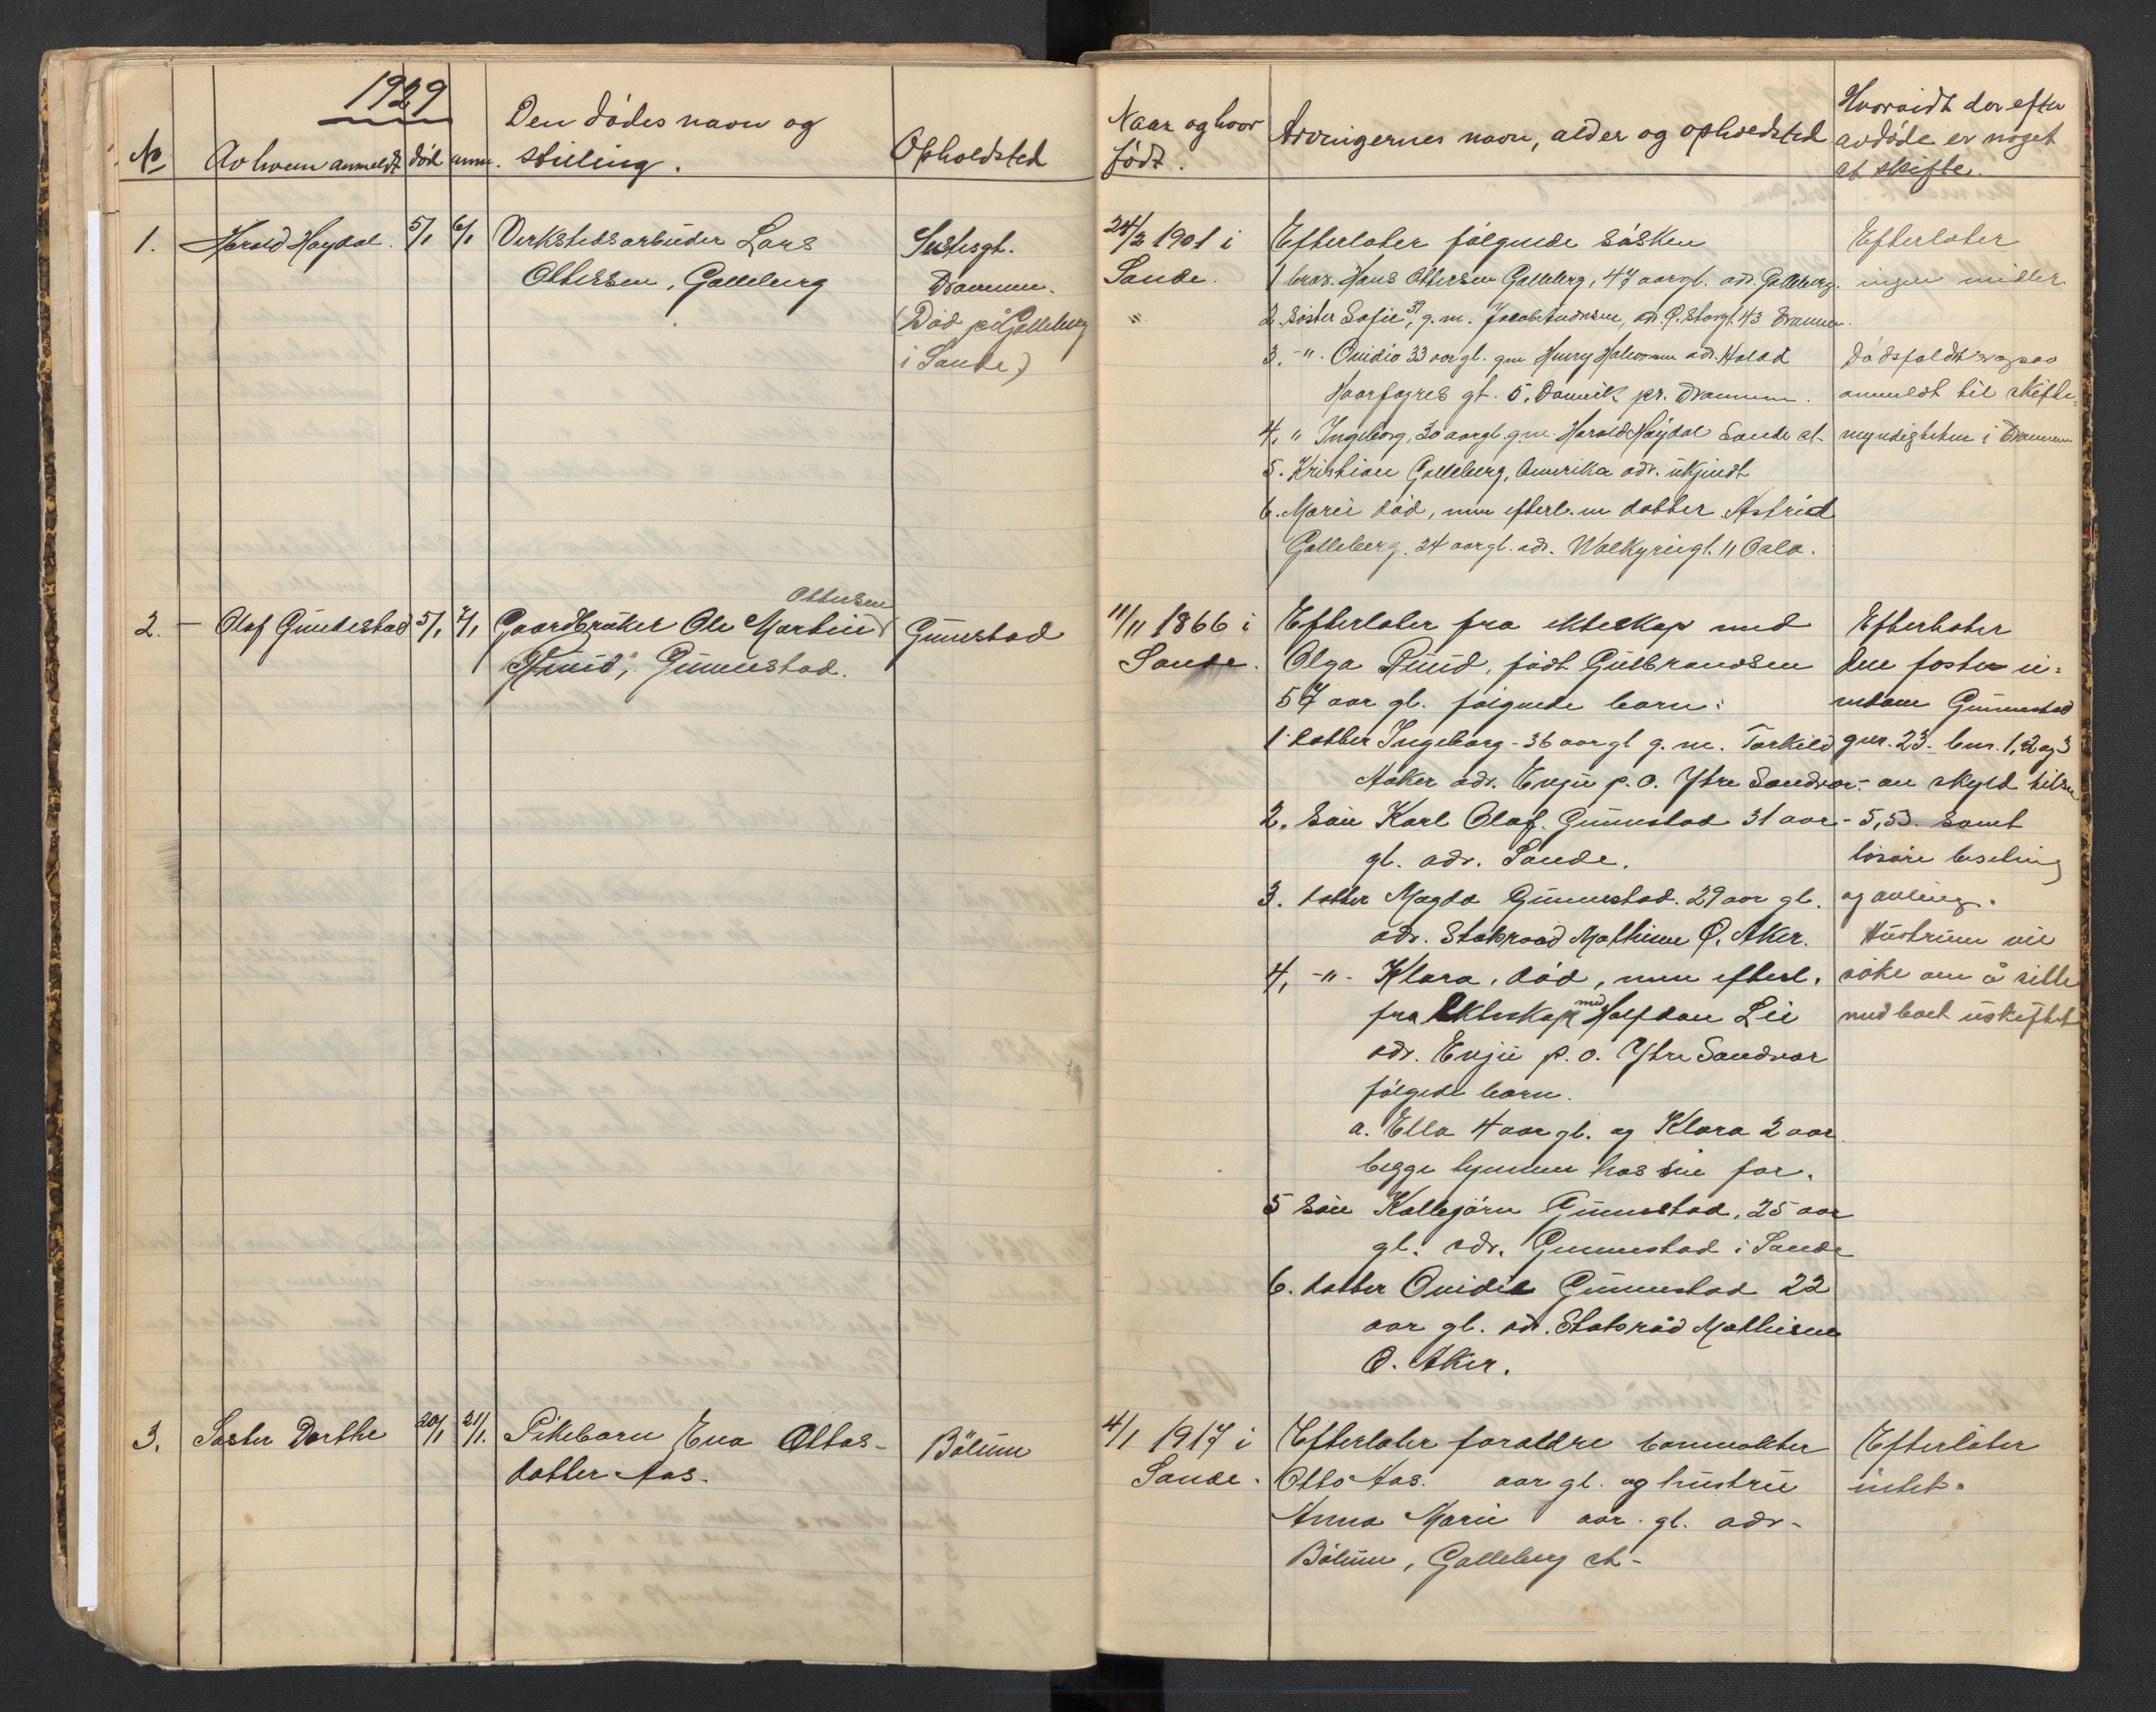 1929
No
Av hvem anmeldt
død
anm.
Den dødes navn og
stilling.
Opholdsted
Naar og hvor
født.
Arvingernes navn, alder og opholdsted
Hvorvidt der efter
avdøde er noget
at skifte.
1. Harald Høydal. 5/1 6/1 Verkstedsarbeider Lars
Ottersen, Galleberg
Drammen.
(Død på Galleberg
i Sande)
24/2 1901 i
Sande.
Efterlater følgende søsken
1 bror. Hans Ottersen Galleberg, 47 aar gl. adr. Galleberg.
2. Søster Sofie, 37, g. m. Jacob Andersen, adr. Ø. Storgt. 43 Drammen.
3. -"- Ovidia 33 aar gl. gm Henry Halvorsen adr. Harald
Haarfagres gt. 5, Danvik pr. Drammen.
4. " Ingeborg, 30 aar gl. g.m. Harald Høydal Sande st-
5. Kristian Galleberg, Amerika adr. ukjendt
6. Marie død, men efterl. en datter Astrid
Galleberg. 24 aar gl. adr. Valkyriegt. 11 Oslo.
Efterlater
ingen midler
Dødsfaldet er ogsaa
anmeldt til skifte-
myndigheten i Drammen
2. - Olaf Gunnestad 5/1 7/1 Gaardbruker Ole Martin Ottersen
Ruud, Gunnestad.
Gunnestad
11/11 1866 i
Sande.
Efterlater fra ekteskap med
Olga Ruud, født Gulbrandsen
57 aar gl. følgende barn:
1 datter Ingeborg - 36 aar gl g. m. Torkild
Aaker adr. Evju p. o. Ytre Sandsvær.
2. Søn Karl Olaf Gunnestad 31 aar
gl. adr. Sande.
3. datter Magda Gunnestad. 29 aar gl.
adr. Statsraad Mathisen Ø. Aker.
4, -"- Klara, død, men efterl.
fra ekteskap med Halfdan Lie
adr. Evju p. o. Ytre Sandsvær
følgede barn.
a. Ella 4 aar gl. og Klara 2 aar
begge hjemme hos sin far.
5 søn Kallejørn Gunnestad, 25 aar
gl. adr. Gunnestad i Sande
6. datter Ovidie Gunnestad 22
aar gl. adr. Statsråd Mathisen
Ø. Aker.
Efterlater
den faste ei-
endom Gunnestad
gnr. 23. bnr. 1, 2 og 3
- av skyld tilsm
- 5,53. samt
løsøre besetning
og avling.
Hustruen vil
søke om å sitte
med boet uskiftet
3. Søster Dorthe 20/1 21/1. Pikebarn Eva Ottos-
datter Aas.
Bølum
4/1 1917 i
Sande.
Efterlater foraldre banevokter
Otto Aas. aar gl. og hustru
Anna Marie aar. gl. adr-
Bølum, Galleberg st-
Efterlater
intet.